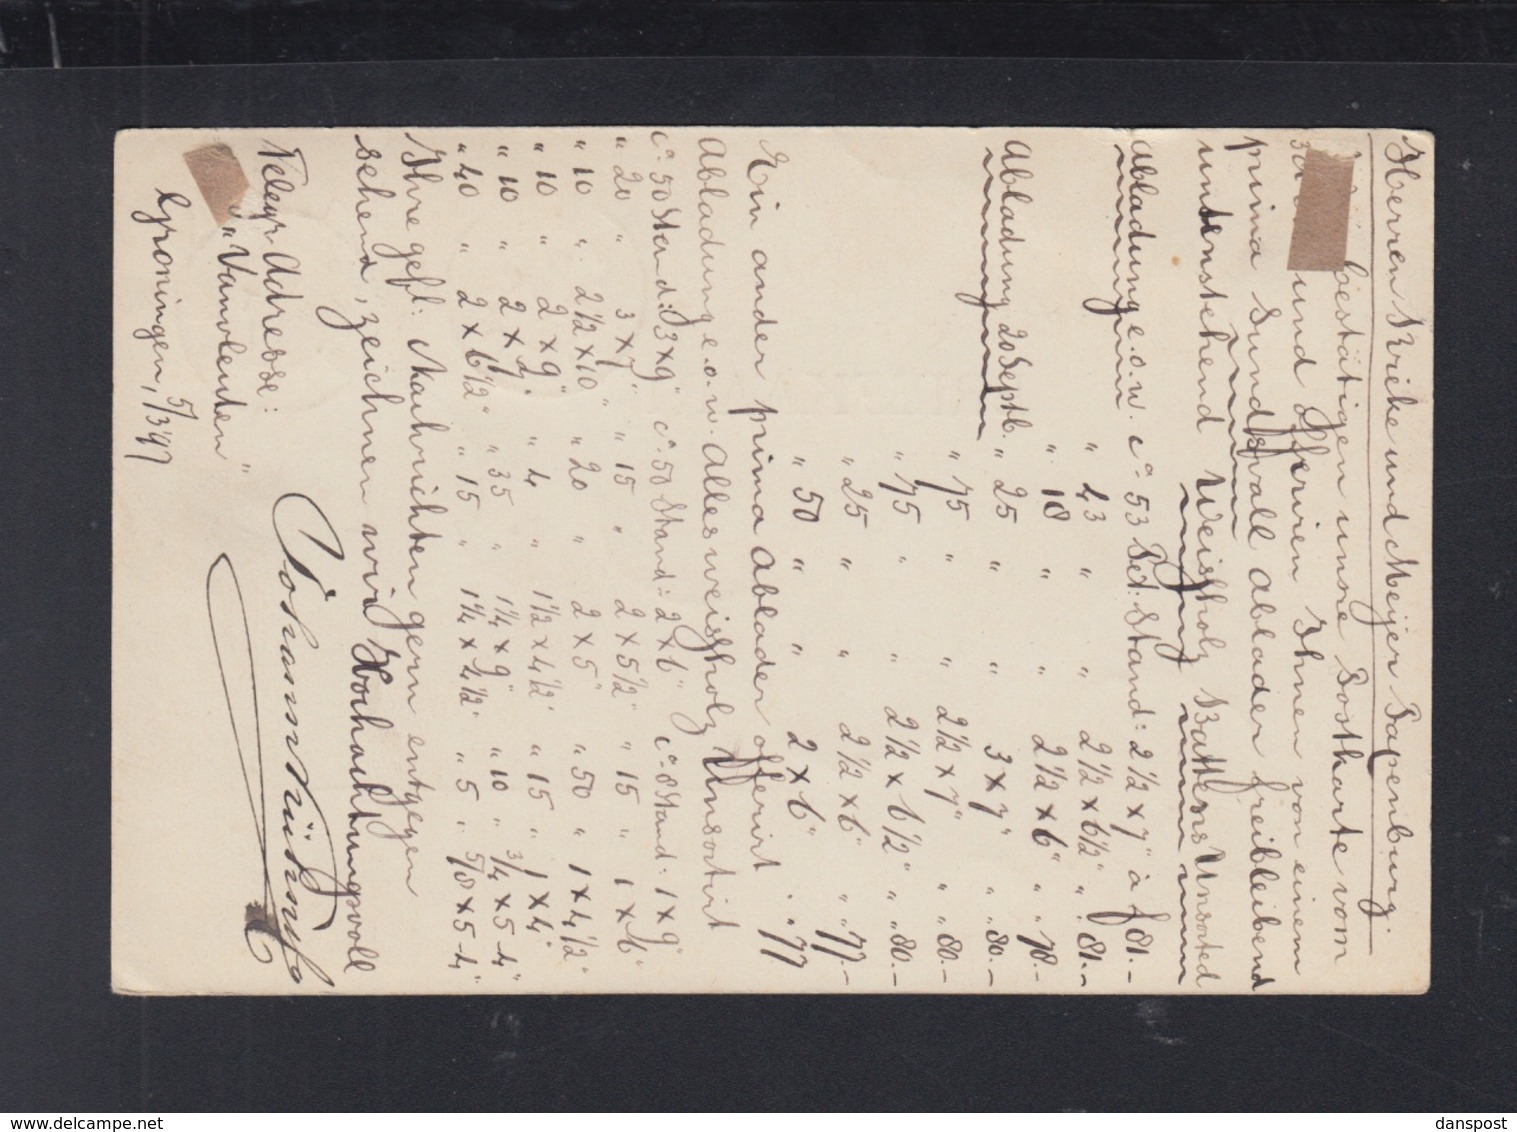 Herren Krieke und Meijer Papenburg.
bestätigen unsre Postkarte vom
30 und offeriren Ihnen von einem
prima Sundsvall Ablader freibleibend
untenstehend Weissholz Battens Unsorted
Abladung e.o.w. ca 53 Pd. Stand: 2 1/2 x 7" à f 81.-
" 43 " " 2 1/2 x 6 1/2" " " 81.-
" 18 " " 2 1/2 x 6" " " 78.-
Abladung 20 Septb. " 25 " " 3 x 7" " " 80.-
" 75 " 2 1/2 x 7" " " 80.-
" 75 " " 2 1/2 x 6 1/2" " " 80.-
" 25 " " 2 1/2 x 6" " " 77.-
" 50 " " 2 x 6" " " 77
Ein ander prima Ablader offerirt
Abladung e.o.w. alles weissholz Unsortirt
ca 50 Stand: 3 x 9" ca 50 Stand: 2 x 6" ca 8 Stand. 1 x 9"
" 20 " 3 x 7" " 15 " 2 x 5 1/2" " 15 " 1 x 6"
" 10 " 2 1/2 x 10" " 20 " 2 x 5" " 50 " 1 x 4 1/2"
" 10 " 2 x 9" " 4 " 1 1/2 x 4 1/2" " 15 " 1 x 4"
" 10 " 2 x 7" " 35 " 1 1/4 x 9" " 10 " 3/4 x 5-4"
" 40 " 2 x 6 1/2" " 15 " 1 1/4 x 4 1/2" " 5 " 5/8 x 5-4"
Ihre gefl: Nachrichten gern entgegen
sehend, zeichnen wir Hochachtungsvoll
Telegr. Adresse:
"Vanvleuten"
Groningen, 5/3 97
danspost